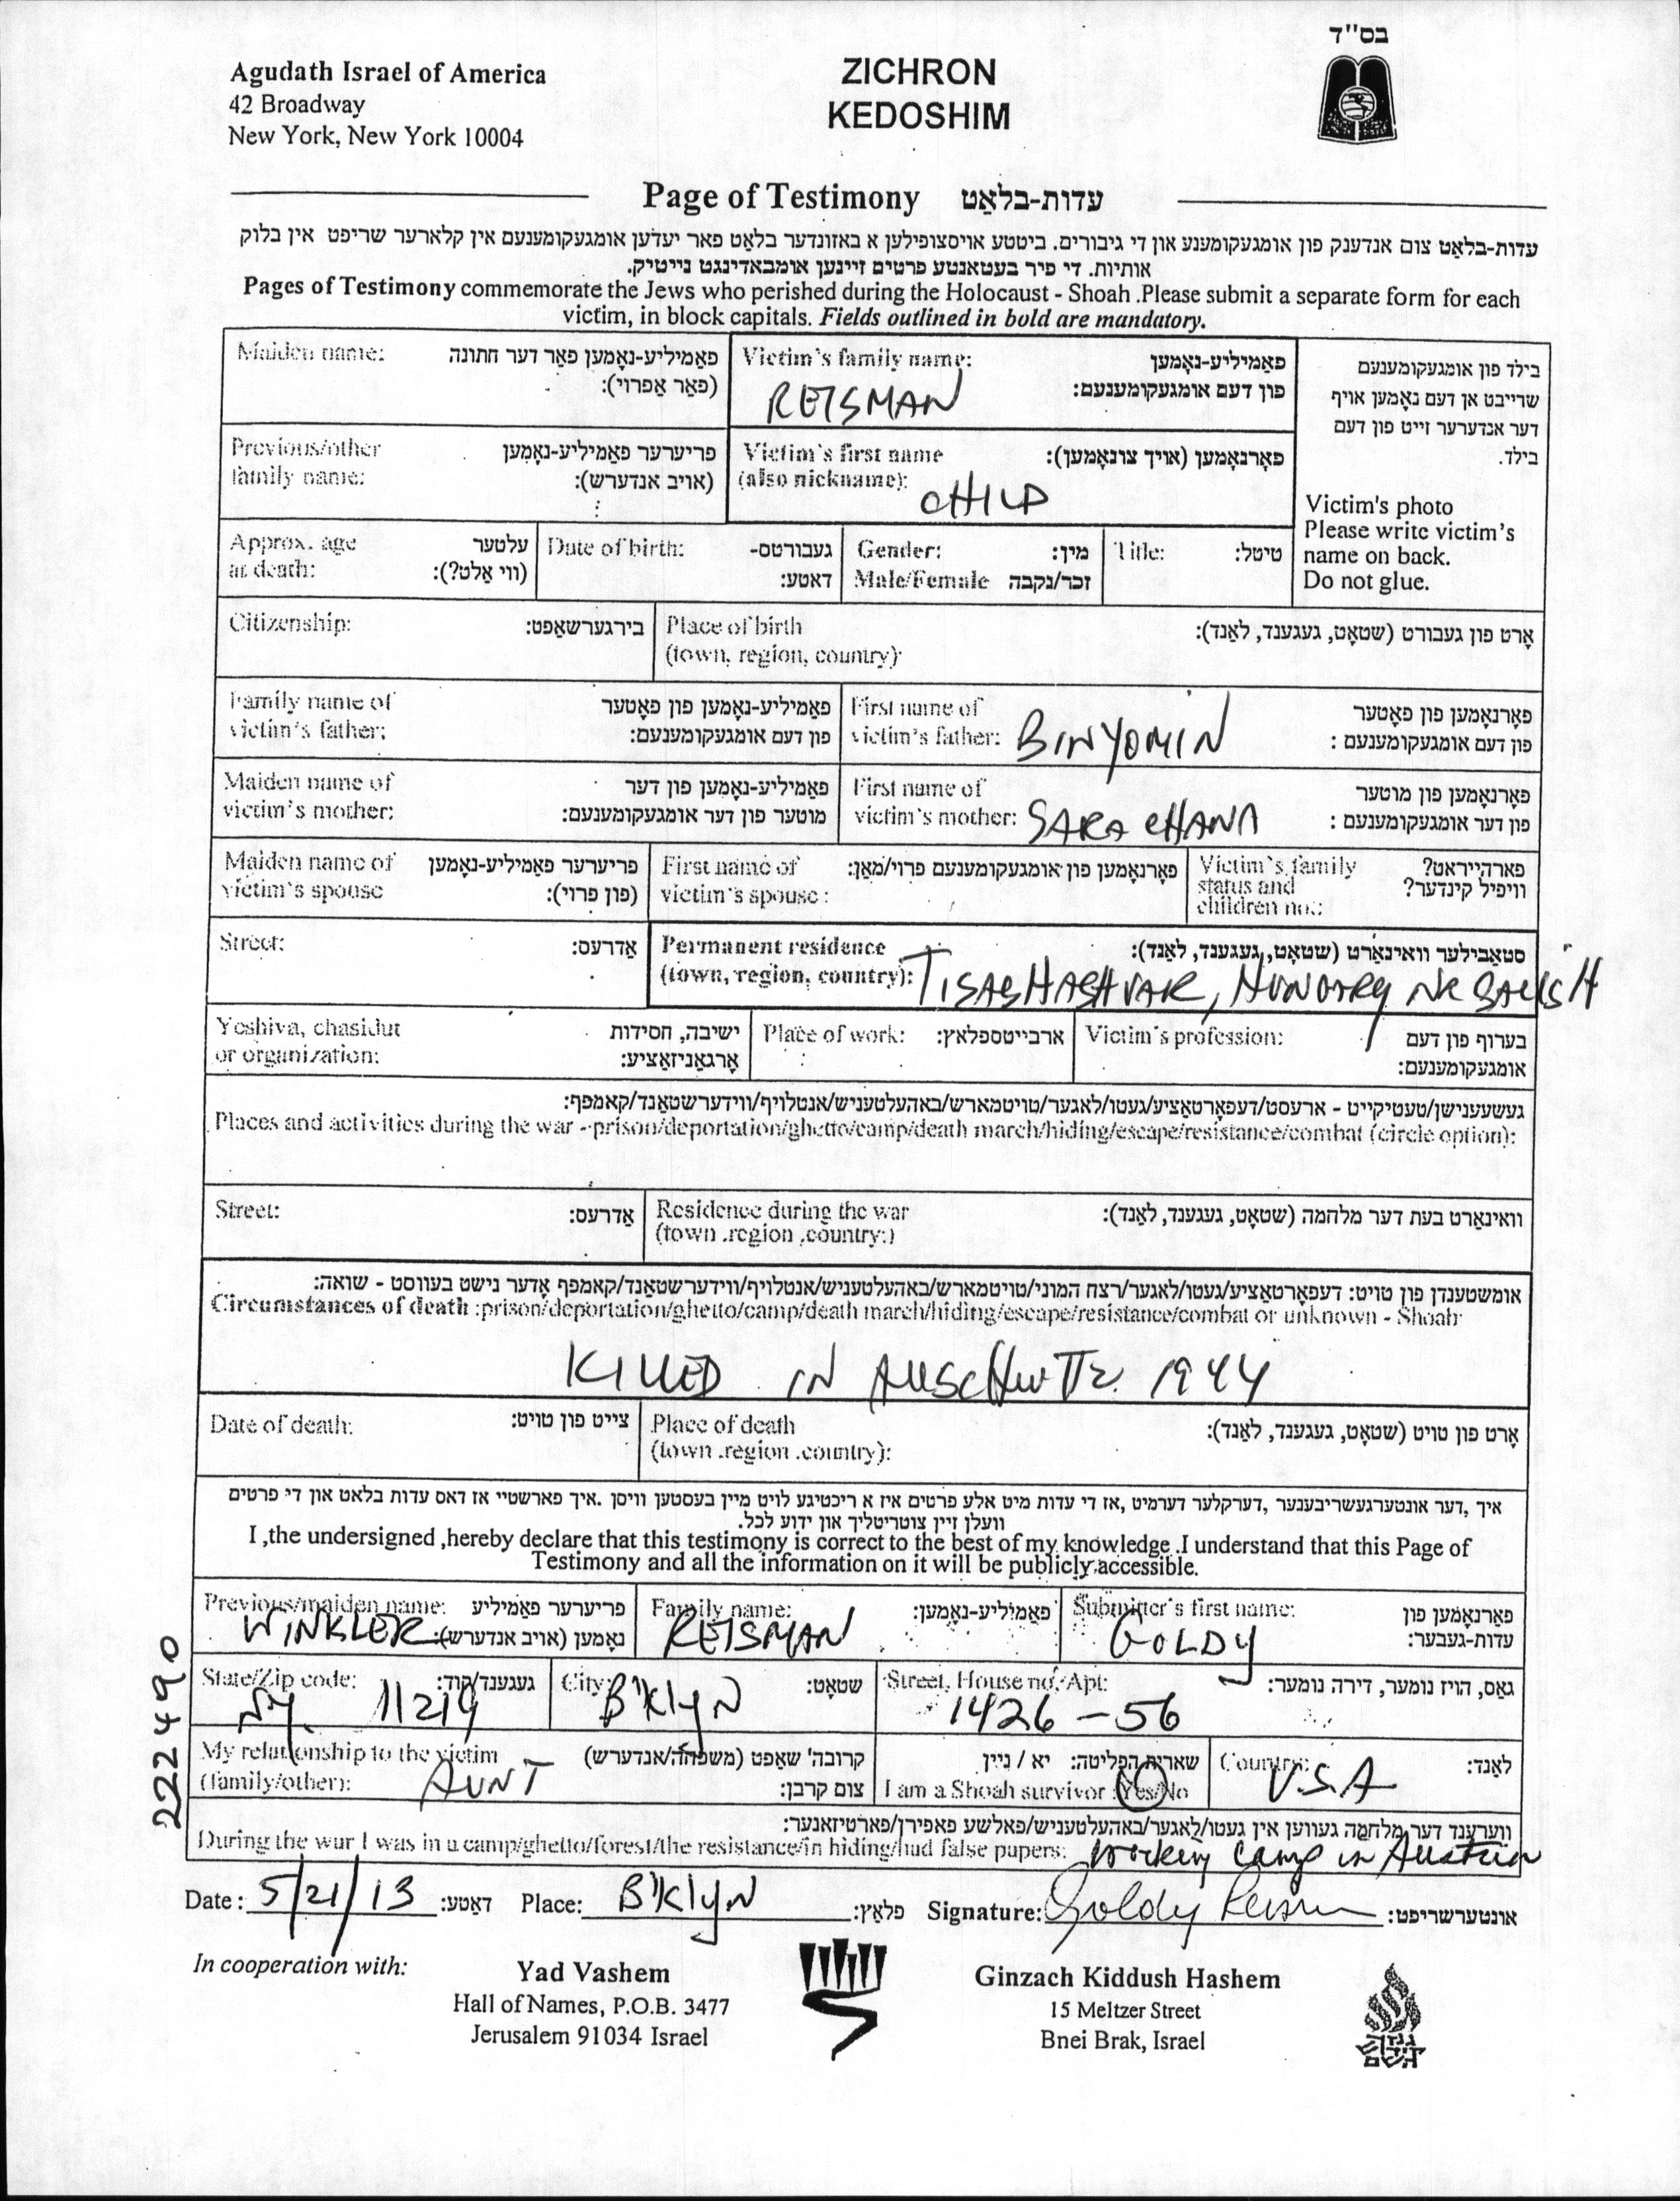 בס"ד
Agudath Israel of America
42 Broadway
New York, New York 10004
ZICHRON
KEDOSHIM
Page of Testimony עדות-בלאַט
עדות-בלאַט צום אנדענק פון אומגעקומענע און די גיבורים. ביטטע אויסצופילען א באזונדער בלאט פאר יעדען אומגעקומענעם אין קלארער שריפט אין בלוק
אותיות. די פיר בעטאנטע פרטים זיינען אומבאדינגט נייטיק.
Pages of Testimony commemorate the Jews who perished during the Holocaust - Shoah .Please submit a separate form for each
victim, in block capitals. Fields outlined in bold are mandatory.
Maiden name: פאַמיליע-נאָמען פאַר דער חתונה
(פאַר אַפרוי):
Victim's family name: פאַמיליע-נאָמען
פון דעם אומגעקומענעם:
REISMAN
Previous/other פריערער פאַמיליע-נאָמען
family name: (אויב אנדערש):
Victim's first name פאָרנאָמען (אויך צונאָמען):
(also nickname):
CHILD
בילד פון אומגעקומענעם
שרייבט אן דעם נאָמען אויף
דער אנדערער זייט פון דעם
בילד.
Victim's photo
Please write victim's
name on back.
Do not glue.
Approx. age עלטער
at death: (ווי אַלט?):
Date of birth: געבורטס-
דאטע:
Gender: מין:
Male/Female זכר/נקבה
Title: טיטל:
Citizenship: בירגערשאַפט:
Place of birth אָרט פון געבורט (שטאָט, געגענד, לאַנד):
(town, region, country)
Family name of פאַמיליע-נאָמען פון פאָטער
victim's father: פון דעם אומגעקומענעם:
First name of פאָרנאָמען פון פאָטער
victim's father: BINYOMIN פון דעם אומגעקומענעם :
Maiden name of פאַמיליע-נאָמען פון דער
victim's mother: מוטער פון דער אומגעקומענעם:
First name of פאָרנאָמען פון מוטער
victim's mother: SARA CHANA פון דער אומגעקומענעם :
Maiden name of פריערער פאַמיליע-נאָמען
victim's spouse (פון פרוי):
First name of פאָרנאָמען פון אומגעקומענעם פרוי/מאַן:
victim's spouse :
Victim's family פארהייראט?
status and וויפיל קינדער?
children no.:
Street: אַדרעס:
Permanent residence סטאַבילער וואינאָרט (שטאָט, געגענד, לאַנד):
(town, region, country): TISASHASHVAR, HUNGARY NR
Yeshiva, chasidut ישיבה, חסידות
or organization: אָרגאַניזאַציע:
Place of work: ארבייטספלאץ:
Victim's profession: בערוף פון דעם
אומגעקומענעם:
געשעענישן/טעטיקייט - ארעסט/דעפאָרטאַציע/געטו/לאגער/טויטמארש/באהעלטעניש/אנטלויף/ווידערשטאַנד/קאמפף:
Places and activities during the war - prison/deportation/ghetto/camp/death march/hiding/escape/resistance/combat (circle option):
Street: אַדרעס:
Residence during the war וואינאָרט בעת דער מלחמה (שטאָט, געגענד, לאַנד):
(town .region .country:)
אומשטענדן פון טויט: דעפאָרטאַציע/געטו/לאגער/רצח המוני/טויטמארש/באהעלטעניש/אנטלויף/ווידערשטאַנד/קאמפף אָדער נישט בעווסט - שואה:
Circumstances of death :prison/deportation/ghetto/camp/death march/hiding/escape/resistance/combat or unknown - Shoah
KILLED IN AUSCHWITZ 1944
Date of death: צייט פון טויט:
Place of death אָרט פון טויט (שטאָט, געגענד, לאַנד):
(town .region .country):
איך ,דער אונטערגעשריבענער ,דערקלער דערמיט ,אז די עדות מיט אלע פרטים איז א ריכטיגע לויט מיין בעסטען וויסן .איך פארשטיי אז דאס עדות בלאט און די פרטים
וועלן זיין צוטריטליך און ידוע לכל.
I ,the undersigned ,hereby declare that this testimony is correct to the best of my knowledge .I understand that this Page of
Testimony and all the information on it will be publicly accessible.
Previous/maiden name: פריערער פאַמיליע
WINKLER נאָמען (אויב אנדערש):
Family name: פאַמיליע-נאָמען:
REISMAN
Submitter's first name: פאַרנאָמען פון
GOLDY עדות-געבער:
State/Zip code: געגענד/קוד:
NY. 11219
City: שטאָט:
B'klyN
Street, House no./Apt: גאס, הויז נומער, דירה נומער:
1426 - 56
My relationship to the victim קרובה' שאַפט (משפחה/אנדערש)
(family/other): AUNT צום קרבן:
שארית הפליטה: יא / ניין
I am a Shoah survivor :Yes/No
Country: לאַנד:
U.S.A
ווערענד דער מלחמה געווען אין געטו/לאגער/באהעלטעניש/פאלשע פאפירן/פארטיזאנער:
During the war I was in a camp/ghetto/forest/the resistance/in hiding/had false papers: working camp in Austria
Date: 5/21/13 דאַטע: Place: B'klyN פלאַץ: Signature: Goldy Reisman אונטערשריפט:
In cooperation with:
Yad Vashem
Hall of Names, P.O.B. 3477
Jerusalem 91034 Israel
Ginzach Kiddush Hashem
15 Meltzer Street
Bnei Brak, Israel
גנזך
קידוש
השם
222490